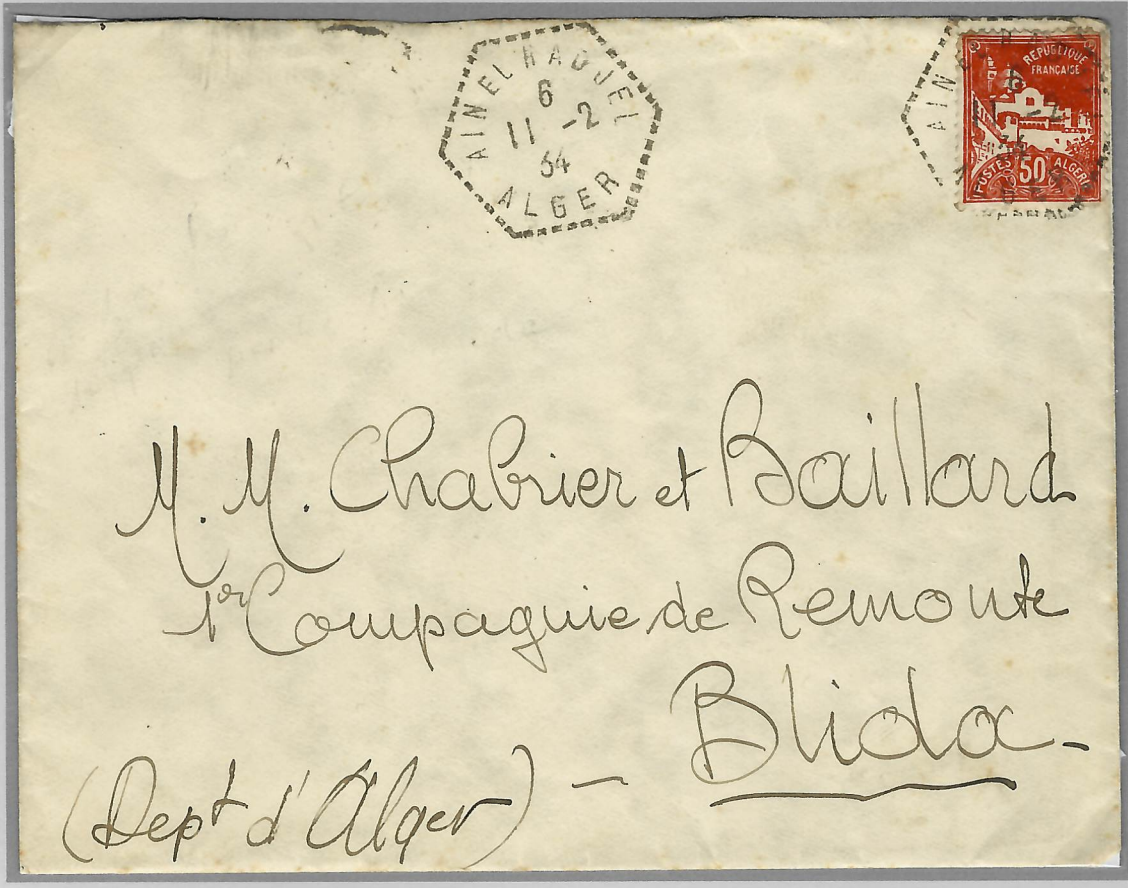 AIN EL HADJEL
6
11 -2
34
ALGER
REPUBLIQUE
FRANÇAISE
POSTES 50 ALGERIE
M. M. Chabrier et Baillard
1er Compagnie de Remonte
Blida -
(Dept d'Alger) -